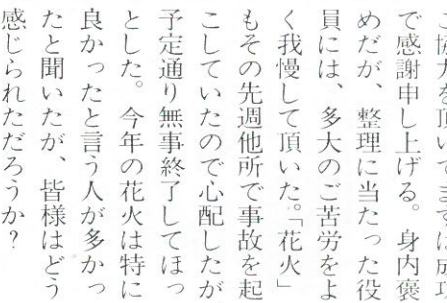 協力を頂いてまずは成功
で感謝申し上げる。身内褒
めだが、整理に当たった役
員には、多大のご苦労をよ
く我慢して頂いた。「花火」
もその先週他所で事故を起
こしていたので心配したが
予定通り無事終了してほっ
とした。今年の花火は特に
良かったと言う人が多かっ
たと聞いたが、皆様はどう
感じられただろうか？